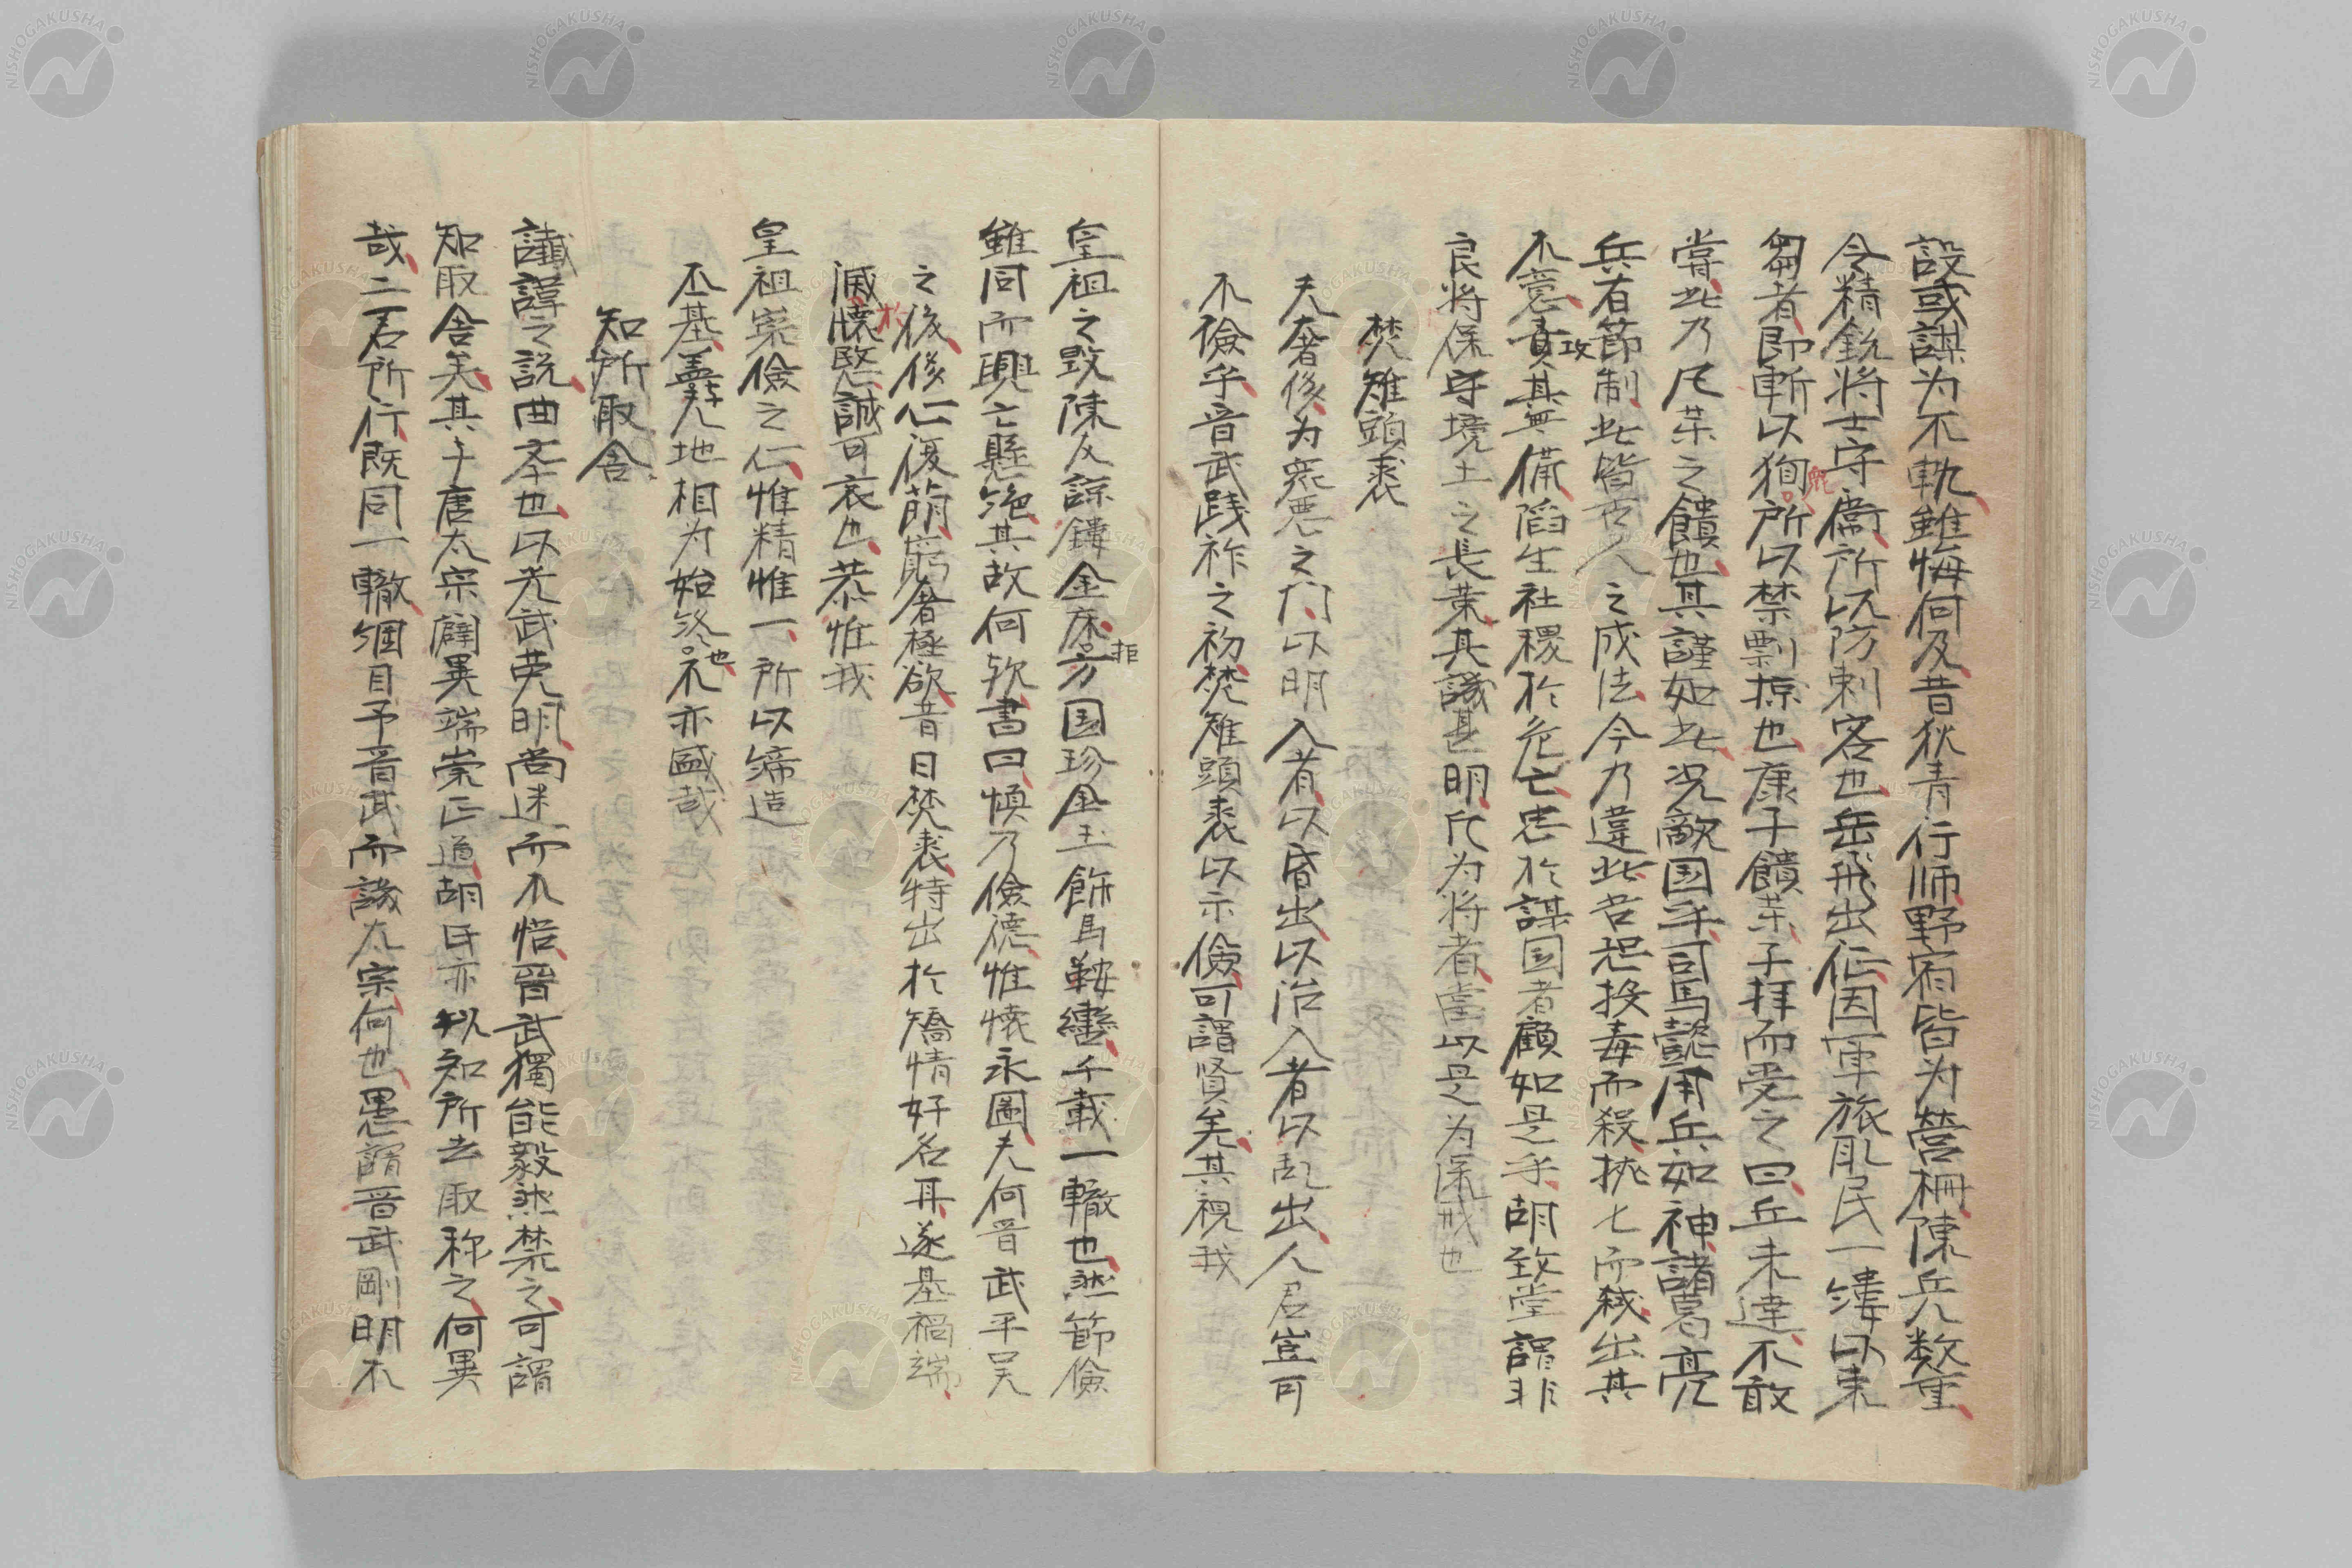 設或謀为不軌雖悔何及昔狄青行师野宿皆为營柵陳兵数重
令精銳将士守衞所以防刺客也岳飛出征因軍旅取民一縷以束
芻者即斬以狥所以禁剽掠也康子饋茱子拜而受之曰丘未達不敢
嘗此乃凡茱之饋也其謹如此況敵国乎司馬懿用兵如神諸葛亮
兵有節制此皆古人之成法今乃違此若祀投毒而殺挑七而弑出其
不意責攻其無備陷生社稷於危亡患於謀国者顧如是乎胡致堂謂非
良将保守境土之長業其議甚明凡为将者當以是为深戒也
焚雉頭裘
夫奢侈为衆悪之门以明入者以昏出以治入者以乱出人君豈可
不儉乎晋武踐祚之初焚雉頭裘以示儉可謂賢矣其視我
皇祖之毀陳友諒鏤金床拒方国珍金玉飾馬鞍轡千載一轍也然節儉
雖同而興亡懸絶其故何欤書曰慎乃儉德惟懷永圖夫何晋武平吴
之後侈心復萌窮奢極欲昔日焚裘特出於矯情好名耳遂基禍端
滅懷愍誠可哀也恭惟我
皇祖崇儉之仁惟精惟一所以締造
丕基盖与天地相为始終也示亦盛哉
知所取舍
讖諱之説曲夲也以光武英明尚迷而不悟晋武獨能毅然禁之可謂
知取舍矣其于唐太宗闢異端崇正道胡氏亦以知所去取称之何異
哉二君所行既同一轍綱目予晋武而議太宗何也愚謂晋武剛明不